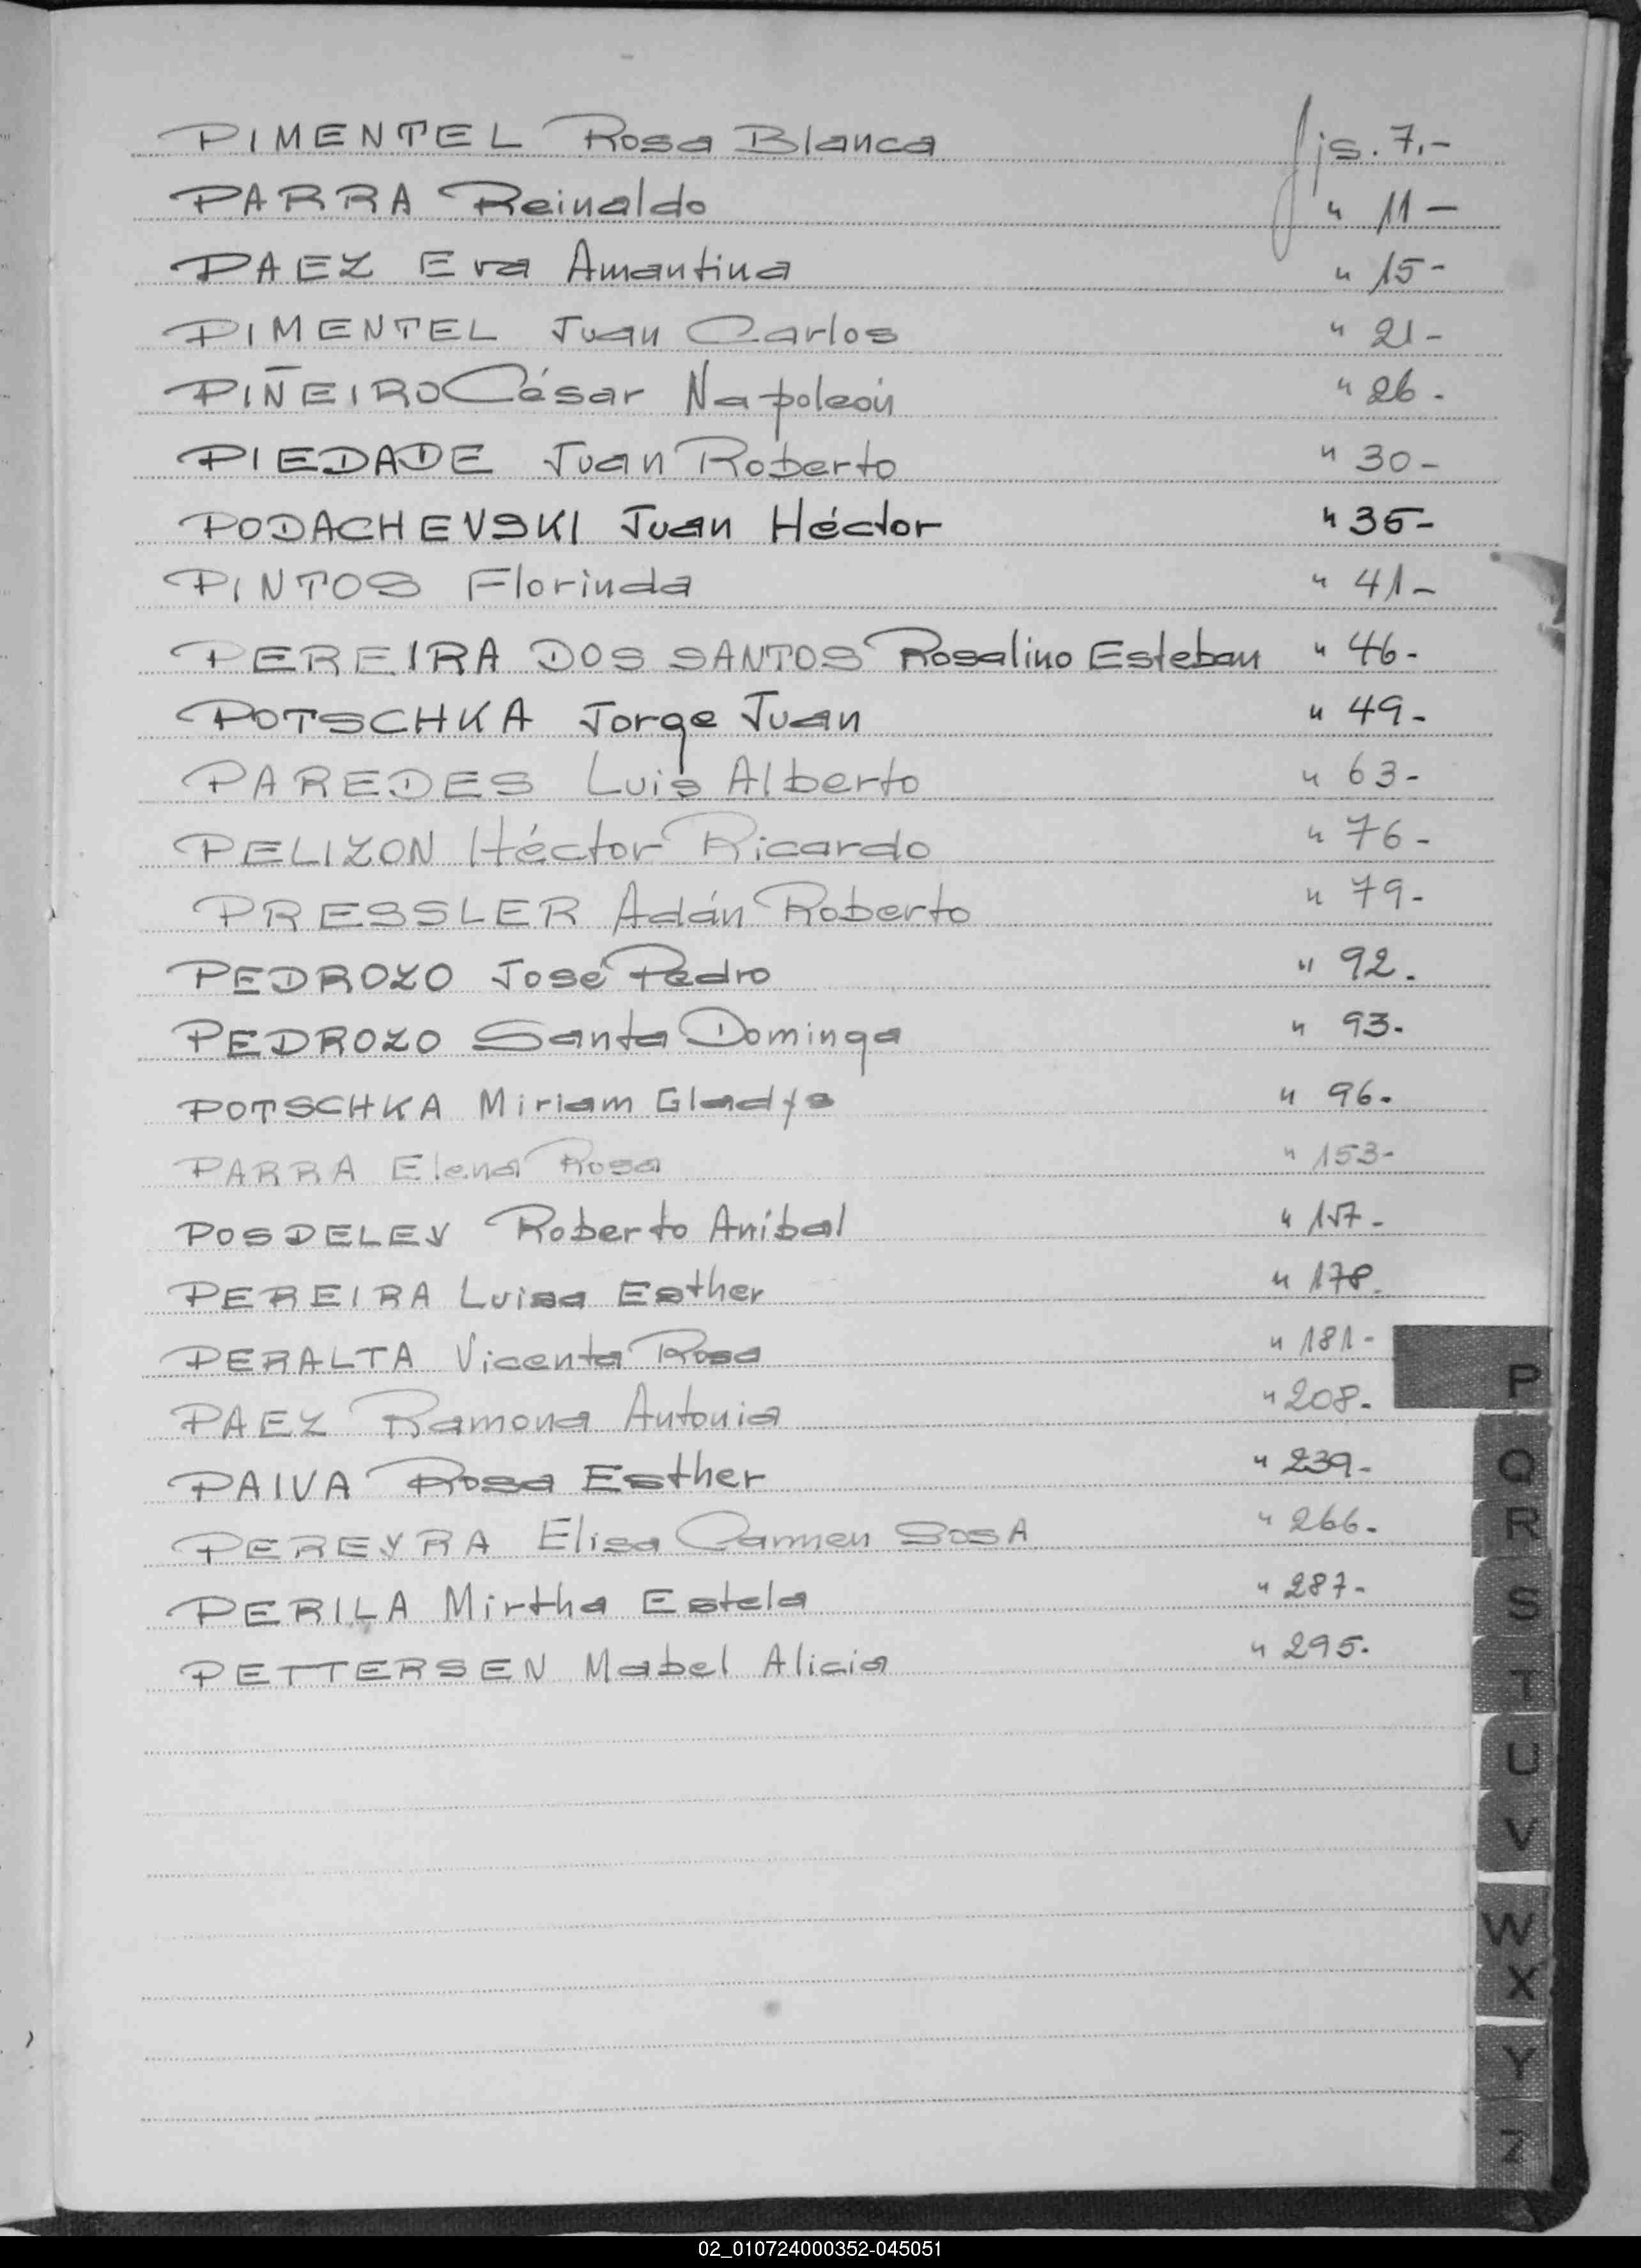 PIMENTEL Rosa Blanca fjs. 7.-
PARRA Reinaldo " 11-
PAEZ Eva Amantina " 15-
PIMENTEL Juan Carlos " 21-
PIÑEIRO César Napoleón " 26.
PIEDADE Juan Roberto " 30-
PODACHEVSKI Juan Héctor " 35-
PINTOS Florinda " 41-
PEREIRA DOS SANTOS Rosalino Esteban " 46-
POTSCHKA Jorge Juan " 49-
PAREDES Luis Alberto " 63-
PELIZON Héctor Ricardo " 76-
PRESSLER Adán Roberto " 79-
PEDROZO José Pedro " 92.
PEDROZO Santa Dominga " 93.
POTSCHKA Miriam Gladys " 96.
PARRA Elena Rosa " 153-
POSDELEY Roberto Aníbal " 157-
PEREIRA Luisa Esther " 178.
PERALTA Vicenta Rosa " 181-
PAEZ Ramona Antonia " 208.
PAIVA Rosa Esther " 239-
PEREYRA Elisa Carmen SOSA " 266.
PERILA Mirtha Estela " 287-
PETTERSEN Mabel Alicia " 295.
P
Q
R
S
T
U
V
W
X
Y
Z
02_010724000352-045051